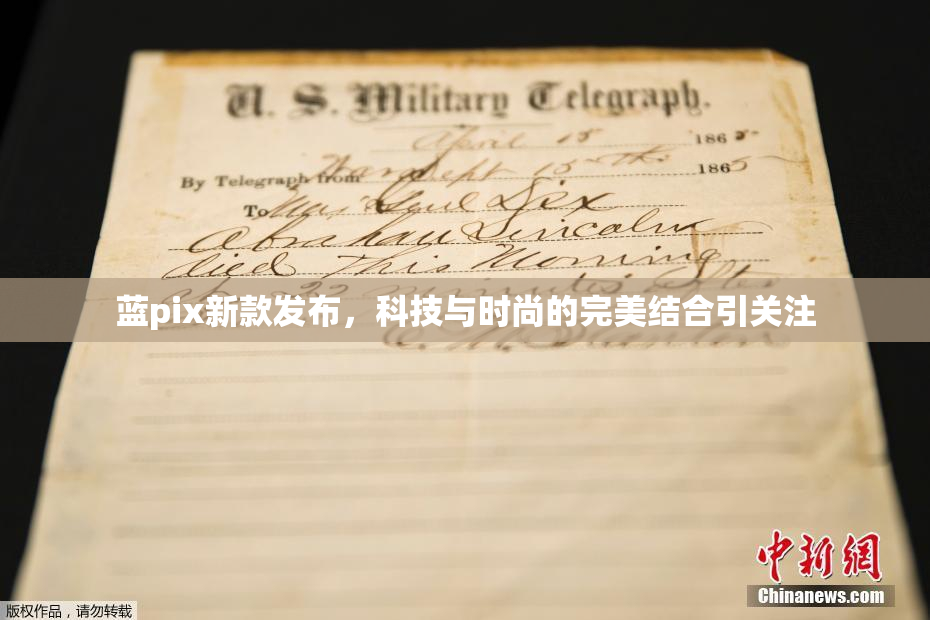 U. S. Military Telegraph.
April 15 1865
By Telegraph from War Dept 15th 1865
To Maj Genl Dix
Abraham Lincoln
died This Morning
at 22 minutes after
蓝pix新款发布，科技与时尚的完美结合引关注
E. M. Stanton
中新网
Chinanews.com
版权作品，请勿转载